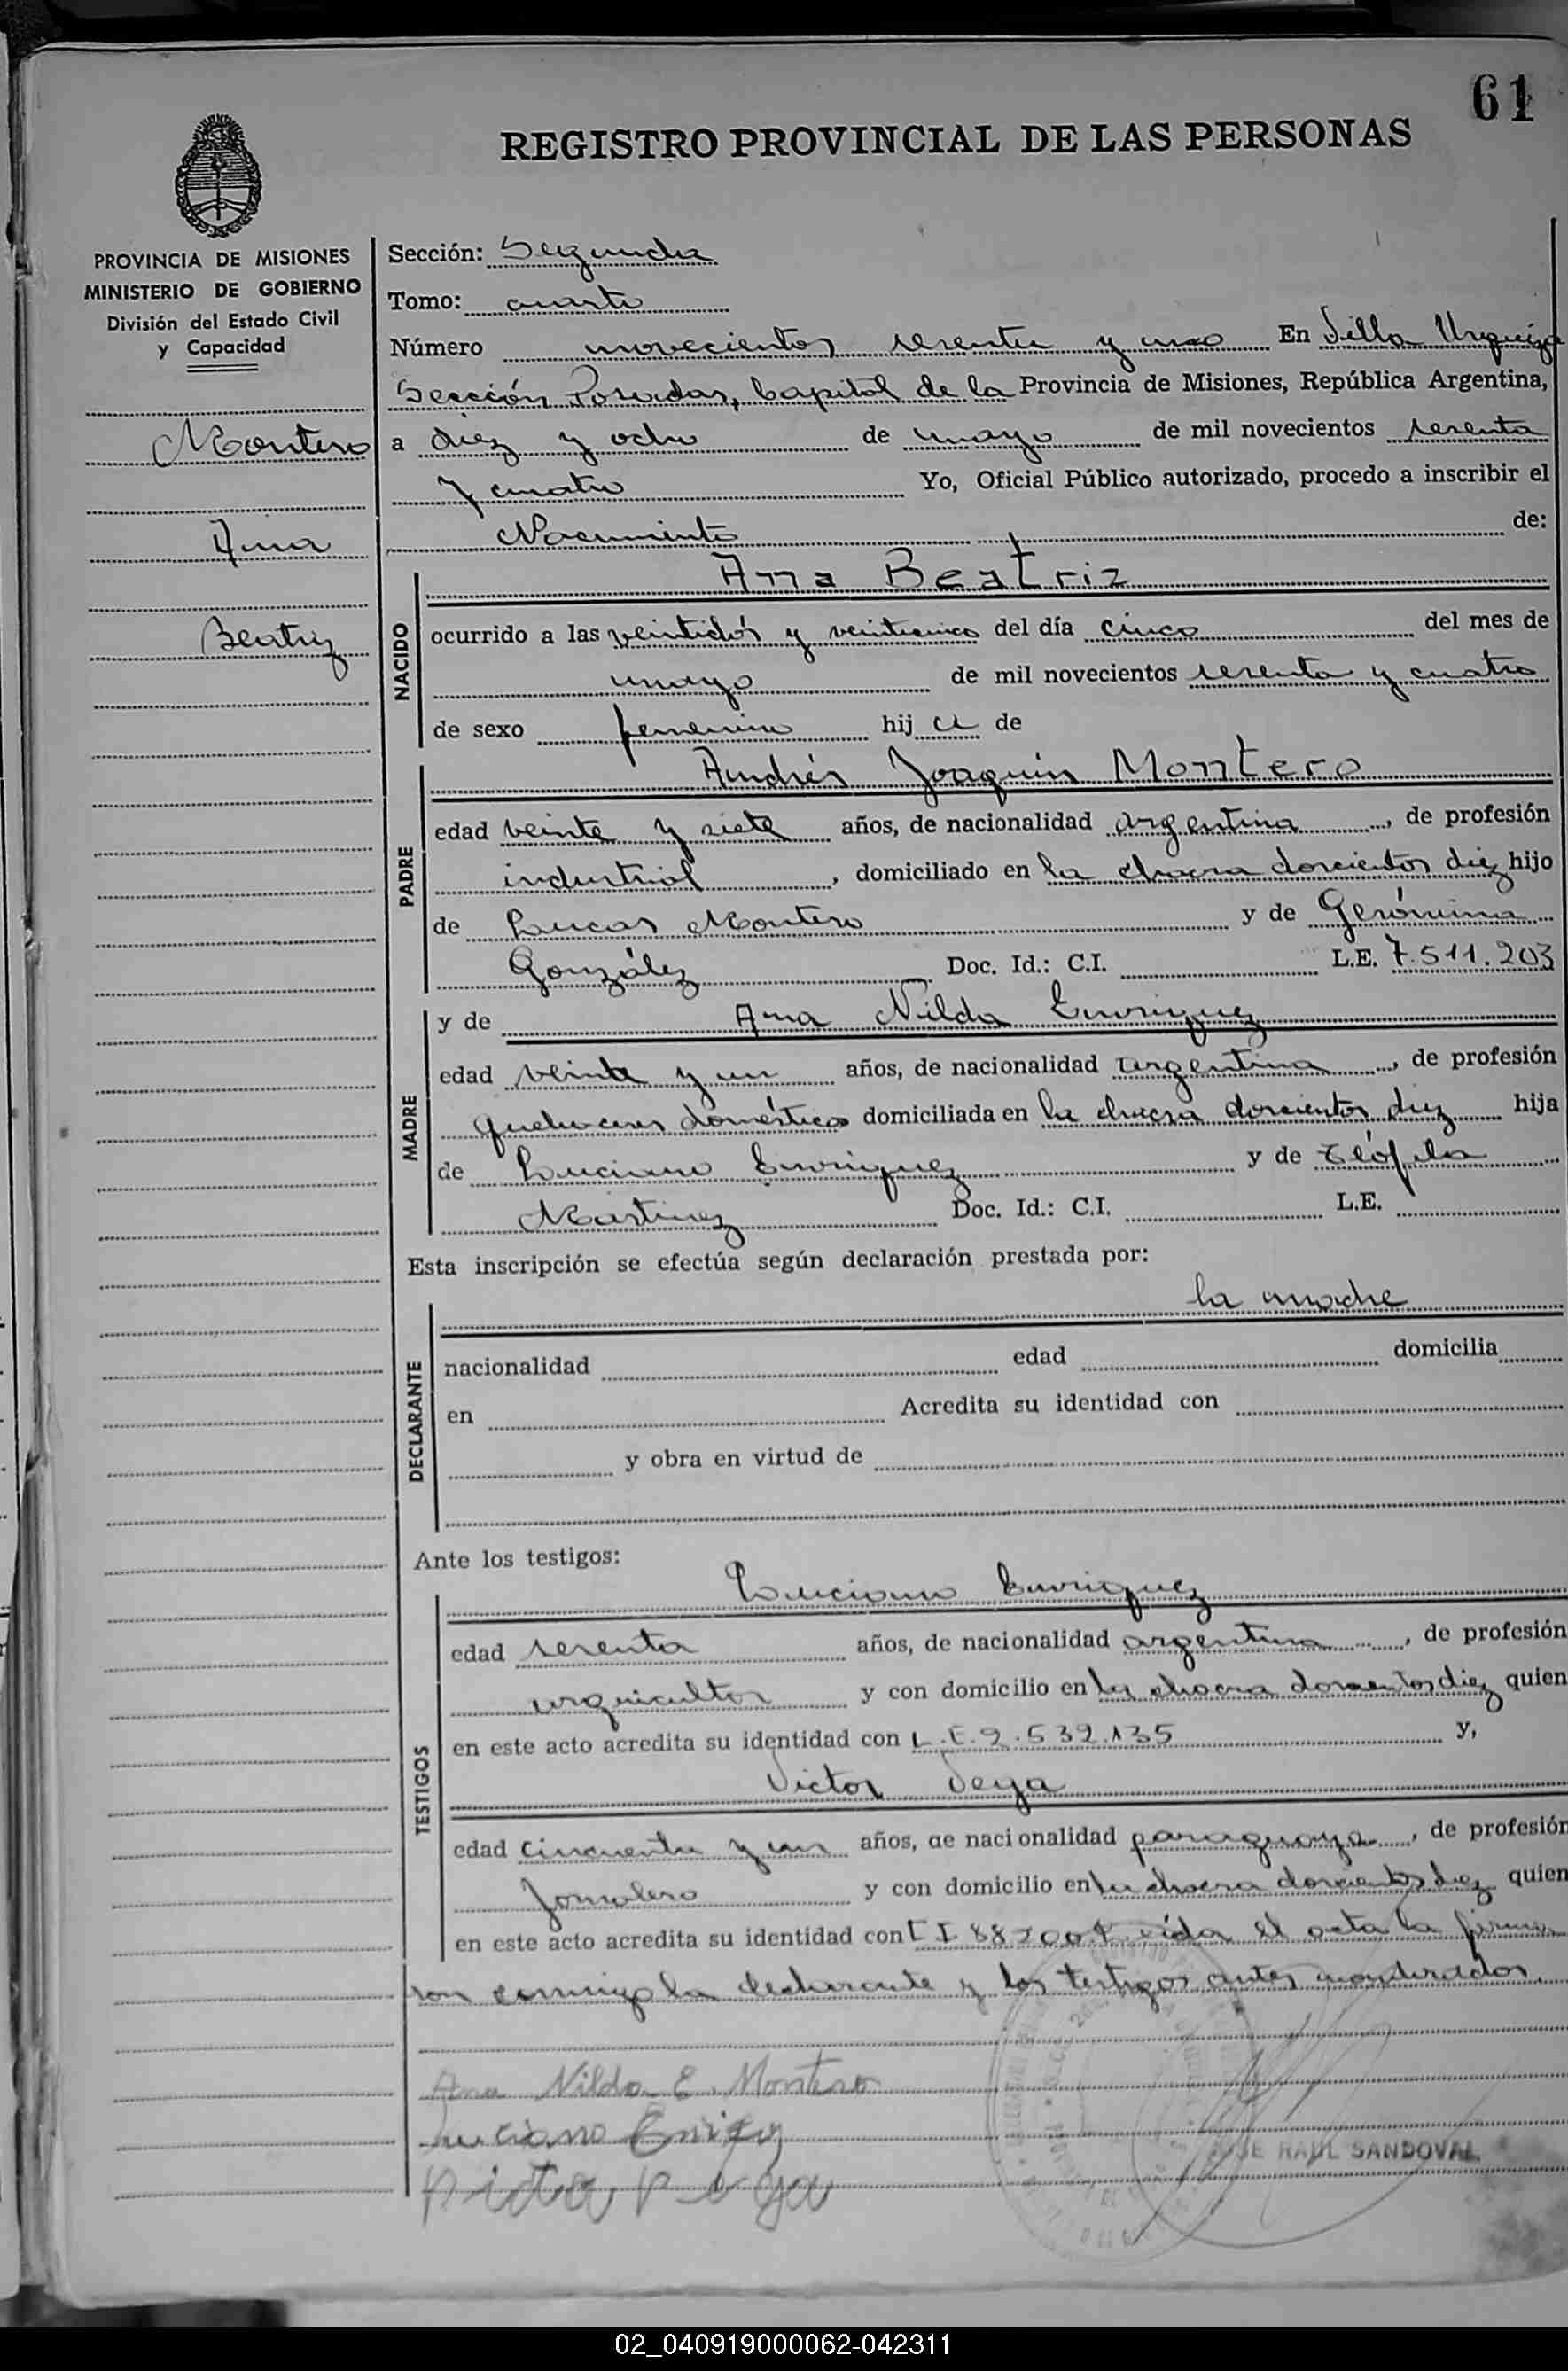 61
REGISTRO PROVINCIAL DE LAS PERSONAS
PROVINCIA DE MISIONES
MINISTERIO DE GOBIERNO
División del Estado Civil
y Capacidad
Montero
Ana
Beatriz
Sección: Segunda
Tomo: cuarto
Número novecientos sesenta y uno En Villa Urquiza
Sección Posadas, Capital de la Provincia de Misiones, República Argentina,
a diez y ocho de mayo de mil novecientos sesenta
y cuatro Yo, Oficial Público autorizado, procedo a inscribir el
Nacimiento de:
NACIDO
Ana Beatriz
ocurrido a las veintidós y veinticinco del día cinco del mes de
mayo de mil novecientos sesenta y cuatro
de sexo femenino hija de
PADRE
Andrés Joaquín Montero
edad veinte y siete años, de nacionalidad argentina, de profesión
industrial, domiciliado en la chacra doscientos diez hijo
de Lucas Montero y de Gerónima
González Doc. Id.: C.I. L.E. 7.511.203
MADRE
y de Ana Nilda Enriquez
edad veinte y un años, de nacionalidad argentina, de profesión
quehaceres domésticos domiciliada en la chacra doscientos diez hija
de Luciano Enriquez y de Teófila
Martinez Doc. Id.: C.I. L.E.
Esta inscripción se efectúa según declaración prestada por:
DECLARANTE
la madre
nacionalidad edad domicilia
en Acredita su identidad con
y obra en virtud de
Ante los testigos:
TESTIGOS
Luciano Enriquez
edad sesenta años, de nacionalidad argentina, de profesión
agricultor y con domicilio en la chacra doscientos diez quien
en este acto acredita su identidad con L.E.2.532.135 y,
Victor Veya
edad cincuenta y un años, de nacionalidad paraguaya, de profesión
Jornalero y con domicilio en la chacra doscientos diez quien
en este acto acredita su identidad con Leída el acta la firma
ron conmigo la declarante y los testigos antes nombrados
Ana Nilda E. Montero
Luciano
JOSE RAUL SANDOVAL
02_040919000062-042311